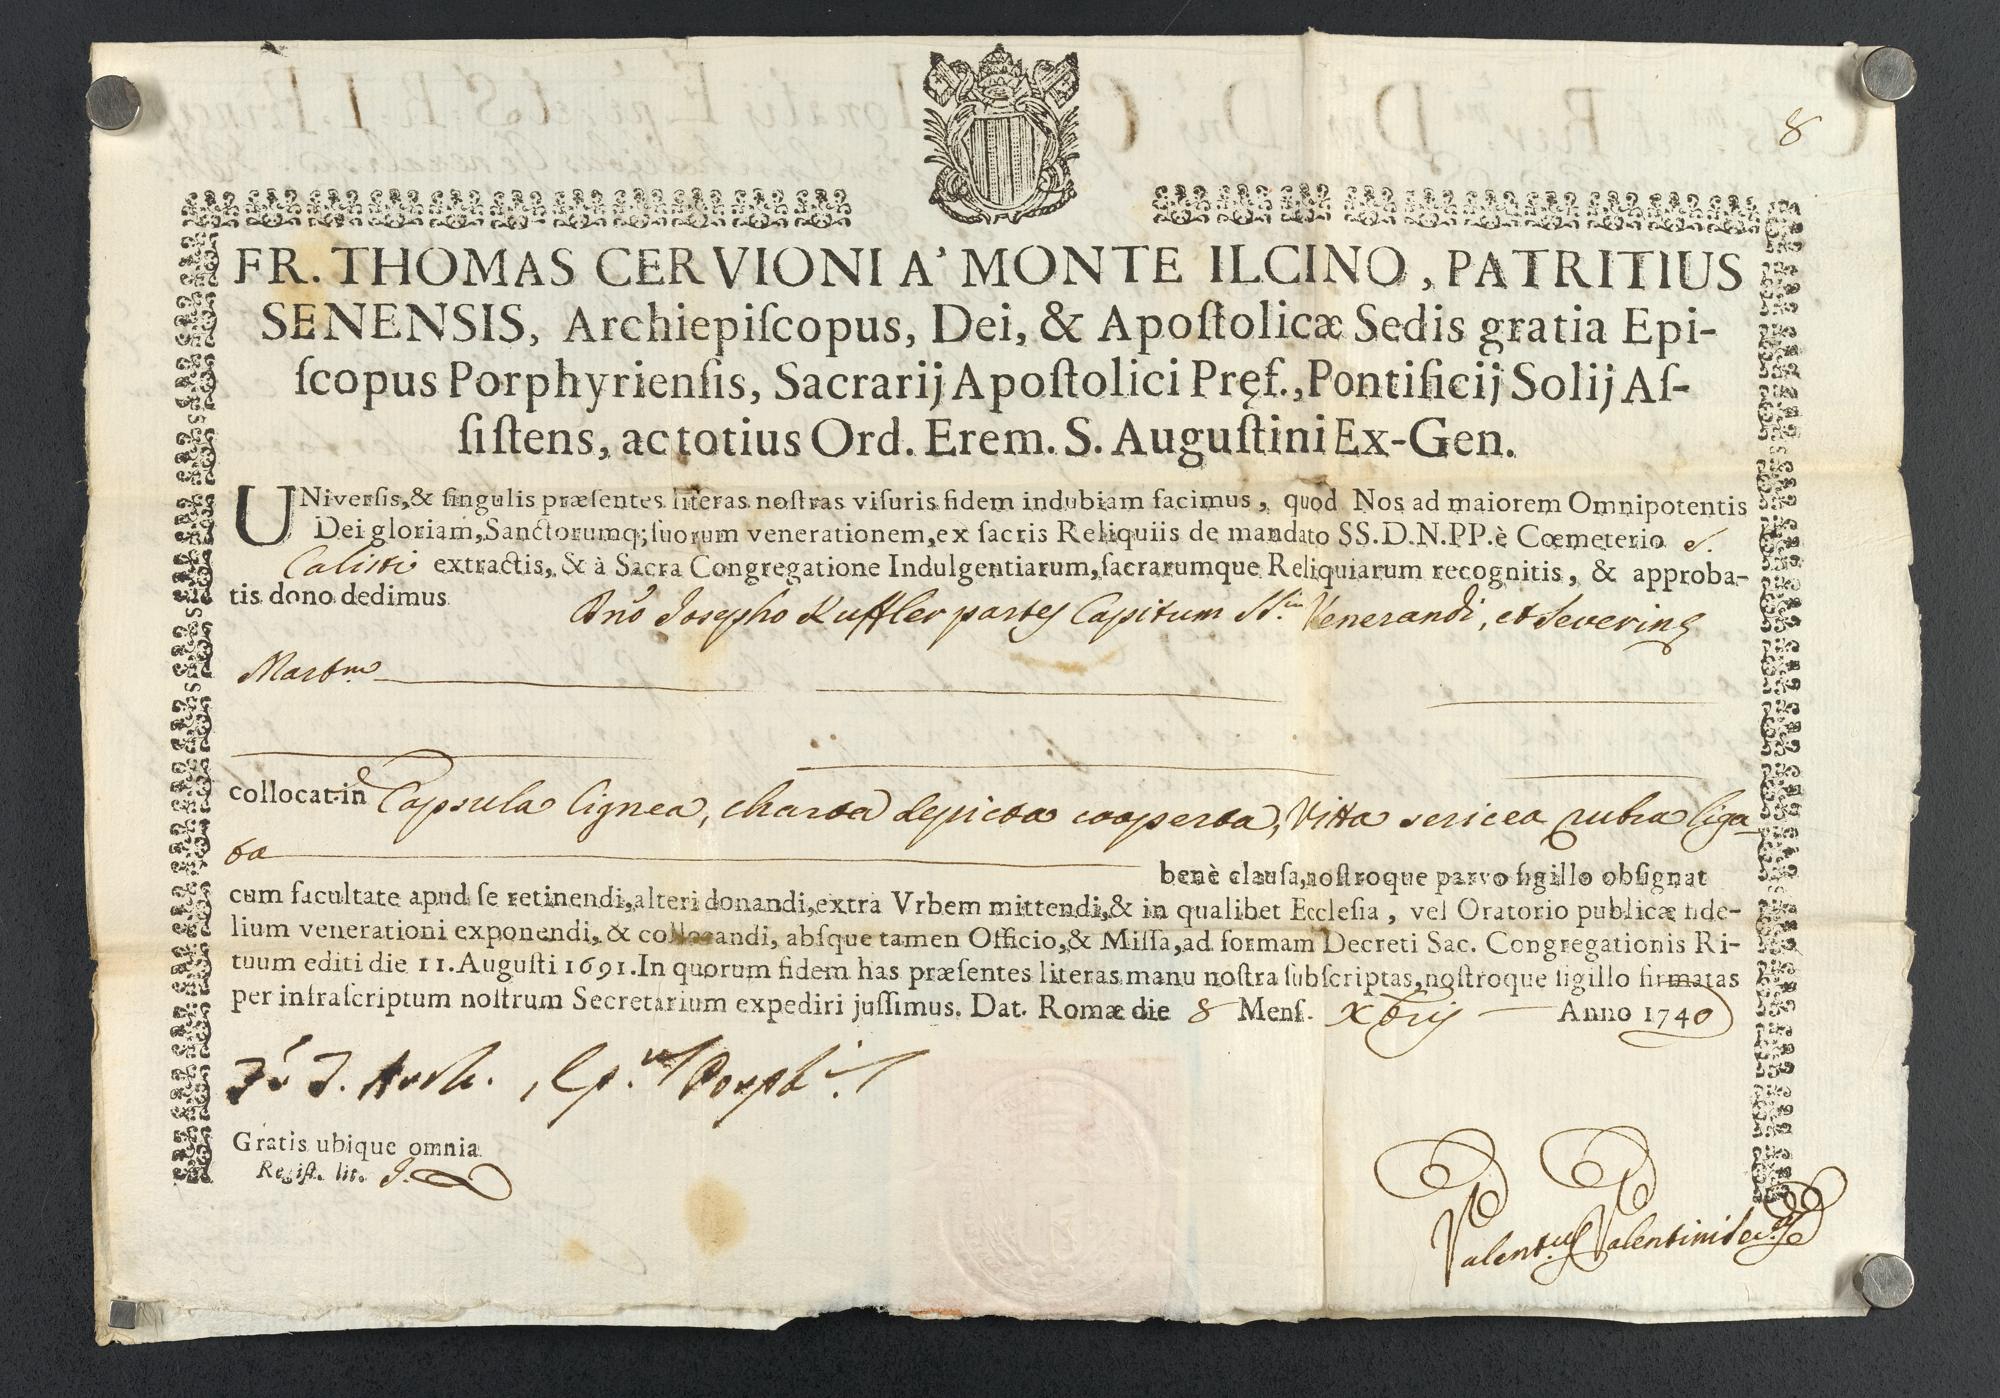 8
FR. THOMAS CERVIONI A' MONTE ILCINO, PATRITIUS
SENENSIS, Archiepiſcopus, Dei, & Apoſtolicæ Sedis gratia Epi-
ſcopus Porphyrienſis, Sacrarij Apoſtolici Pręf., Pontificij Solij Aſ-
ſiſtens, ac totius Ord. Erem. S. Auguſtini Ex-Gen.
UNiverſis, & ſingulis præſentes literas noſtras viſuris fidem indubiam facimus, quod Nos ad maiorem Omnipotentis
Dei gloriam, Sanctorumq; ſuorum venerationem, ex ſacris Reliquiis de mandato SS. D. N. PP. è Cœmeterio S.
Calisti extractis, & à Sacra Congregatione Indulgentiarum, ſacrarumque Reliquiarum recognitis, & approba-
tis dono dedimus
Dno Josepho Kuffler partes Capitum Venerandi, et Severing
Martm
collocat in Capsula lignea, charta depicta cooperta, Vitta sericea rubra liga
ta
benè clauſa, noſtroque parvo ſigillo obſignat
cum facultate apud ſe retinendi, alteri donandi, extra Vrbem mittendi, & in qualibet Eccleſia, vel Oratorio publicæ fide-
lium venerationi exponendi, & collocandi, abſque tamen Officio, & Miſſa, ad formam Decreti Sac. Congregationis Ri-
tuum editi die 11. Auguſti 1691. In quorum fidem has præſentes literas manu noſtra ſubſcriptas, noſtroque ſigillo firmatas
per infraſcriptum noſtrum Secretarium expediri juſſimus. Dat. Romæ die 8 Menſ. Xbris Anno 1740
Fr. T. Arch. Ep.us Porph.
Gratis ubique omnia
Regiſt. lit. J.
Valent.us Valentini Sec.